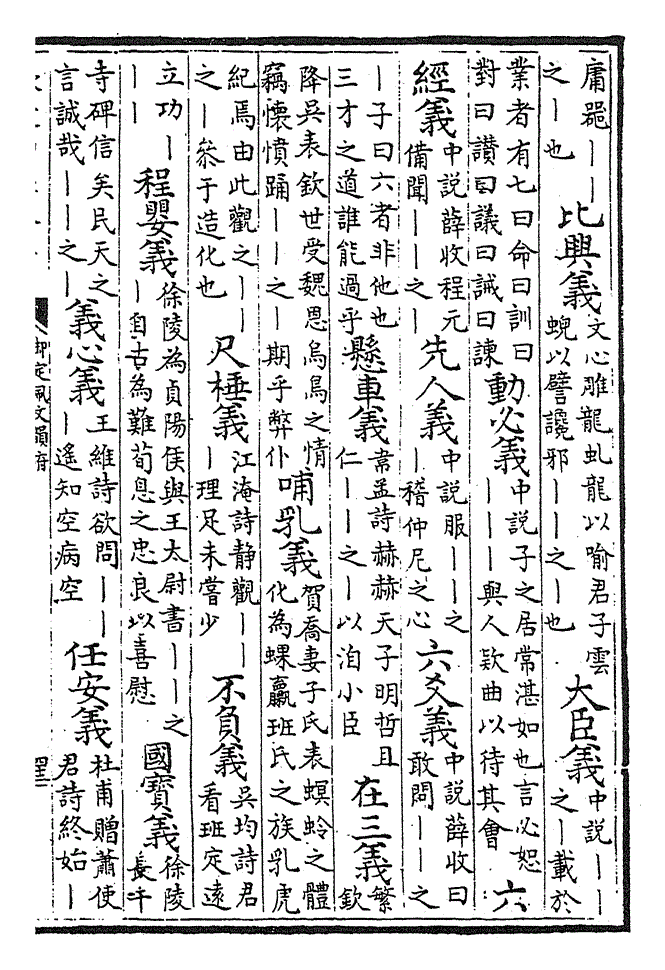 庸器｜｜之｜也比興義文心雕龍虬龍以喻君子雲蜺以譬讒邪｜｜之｜也大臣義中說｜｜之｜載於
業者有七曰命曰訓曰對曰讚曰議曰誡曰諫動必義中說子之居常湛如也言必恕｜｜｜與人欵曲以待其會六
經義中說薛收程元備聞｜｜之｜先人義中說服｜｜之｜稽仲尼之心六爻義中說薛收曰敢問｜｜之
｜子曰六者非他也三才之道誰能過乎懸車義韋孟詩赫赫天子明哲且仁｜｜之｜以洎小臣在三義繁欽
降吳表欽世受魏恩烏鳥之情竊懷憤踊｜｜之｜期乎弊仆哺乳義賀喬妻于氏表螟蛉之體化為蜾蠃班氏之族乳虎
紀焉由此觀之｜｜之｜參于造化也尺棰義江淹詩靜觀｜｜｜理足未嘗少不負義吳均詩君看班定遠
立功｜｜｜程嬰義徐陵為貞陽侯與王太尉書｜｜之｜自古為難荀息之忠良以喜慰國寶義徐陵長干
寺碑信矣民天之言誠哉｜｜之｜義心義王維詩欲問｜｜｜遙知空病空任安義杜甫贈蕭使君詩終始｜
御定佩文韻府